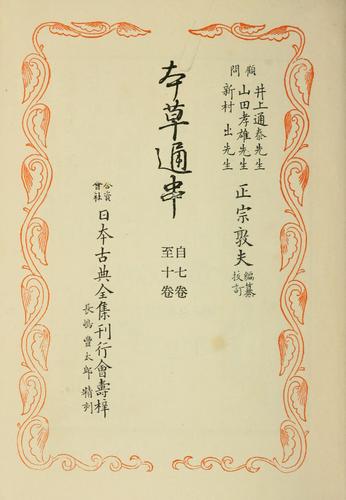 顧問
井上通泰先生
山田孝雄先生
新村出先生
正宗敦夫
編纂
校訂
本草通串
自七卷
至十卷
合資
會社
日本古典全集刊行會壽梓
長嶋豐太郎精刻